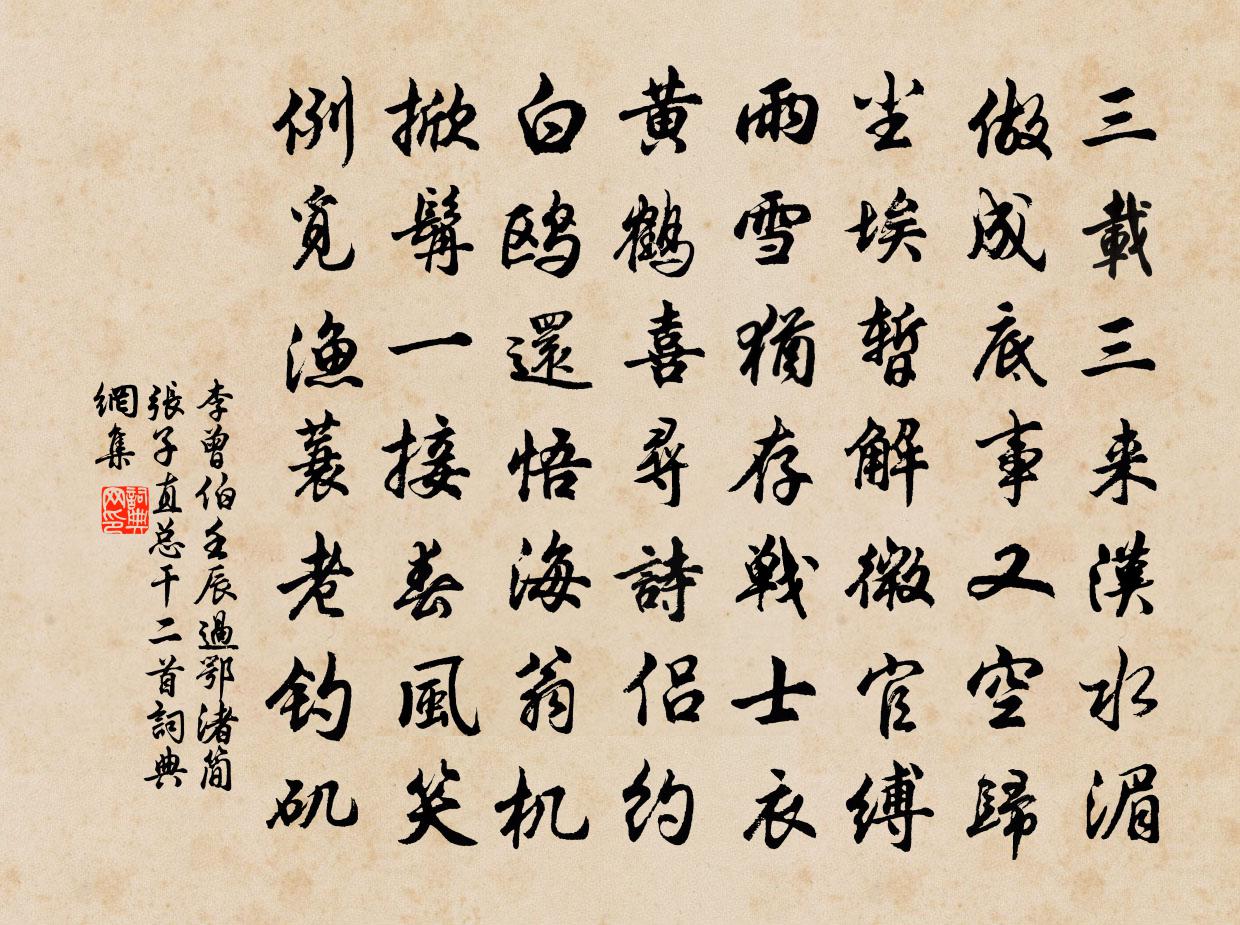 三載三来漢水湄
做成底事又空歸
尘埃暫解微官縛
雨雪猶存戦士衣
黄鶴喜尋詩侣約
白鸥還悟海翁机
掀髯一接春風笑
例覓漁蓑老钓矶
李曾伯壬辰過鄂渚简
張子直总干二首詞典
網集
詞典网印